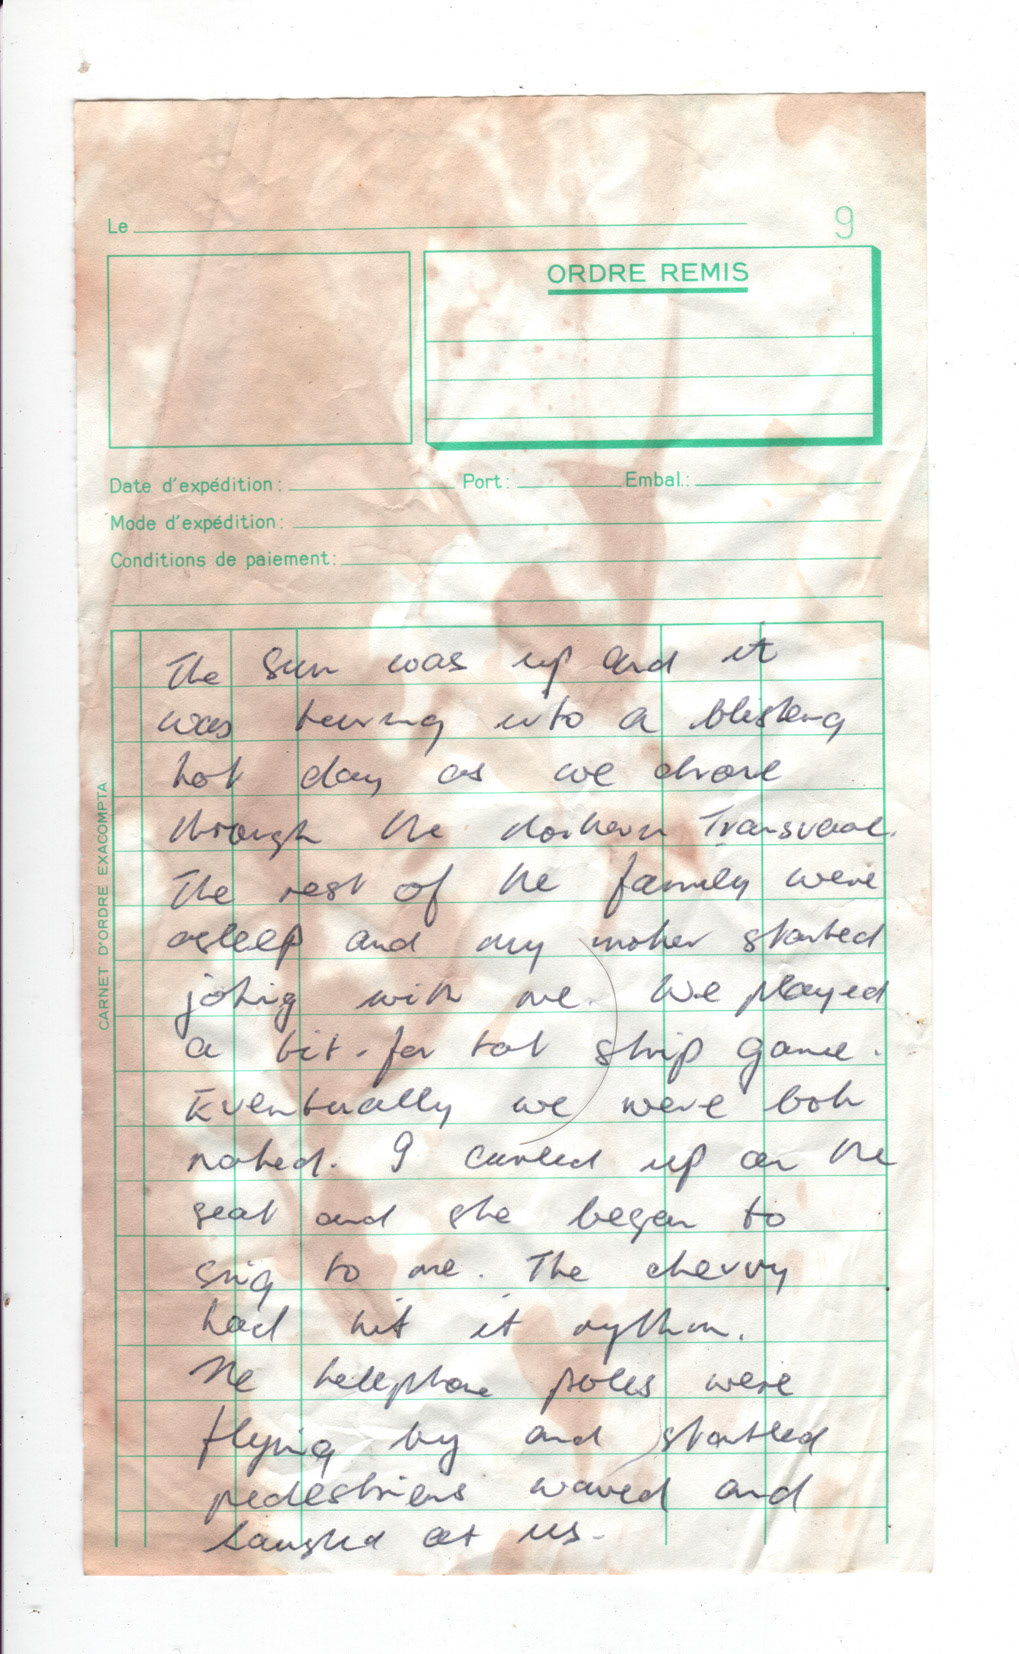 Le
9
ORDRE REMIS
Date d'expédition : Port : Embal.:
Mode d'expédition :
Conditions de paiement :
CARNET D'ORDRE EXACOMPTA
The sun was up and it
was turning into a blistering
hot day as we drove
through the northern Transvaal.
The rest of the family were
asleep and my mother started
joking with me. We played
a tit-for tat strip game.
Eventually we were both
naked. I curled up on the
seat and she began to
sing to me. The chevvy
had hit it rythm.
The telephone poles were
flying by and startled
pedestrians waved and
laughed at us.